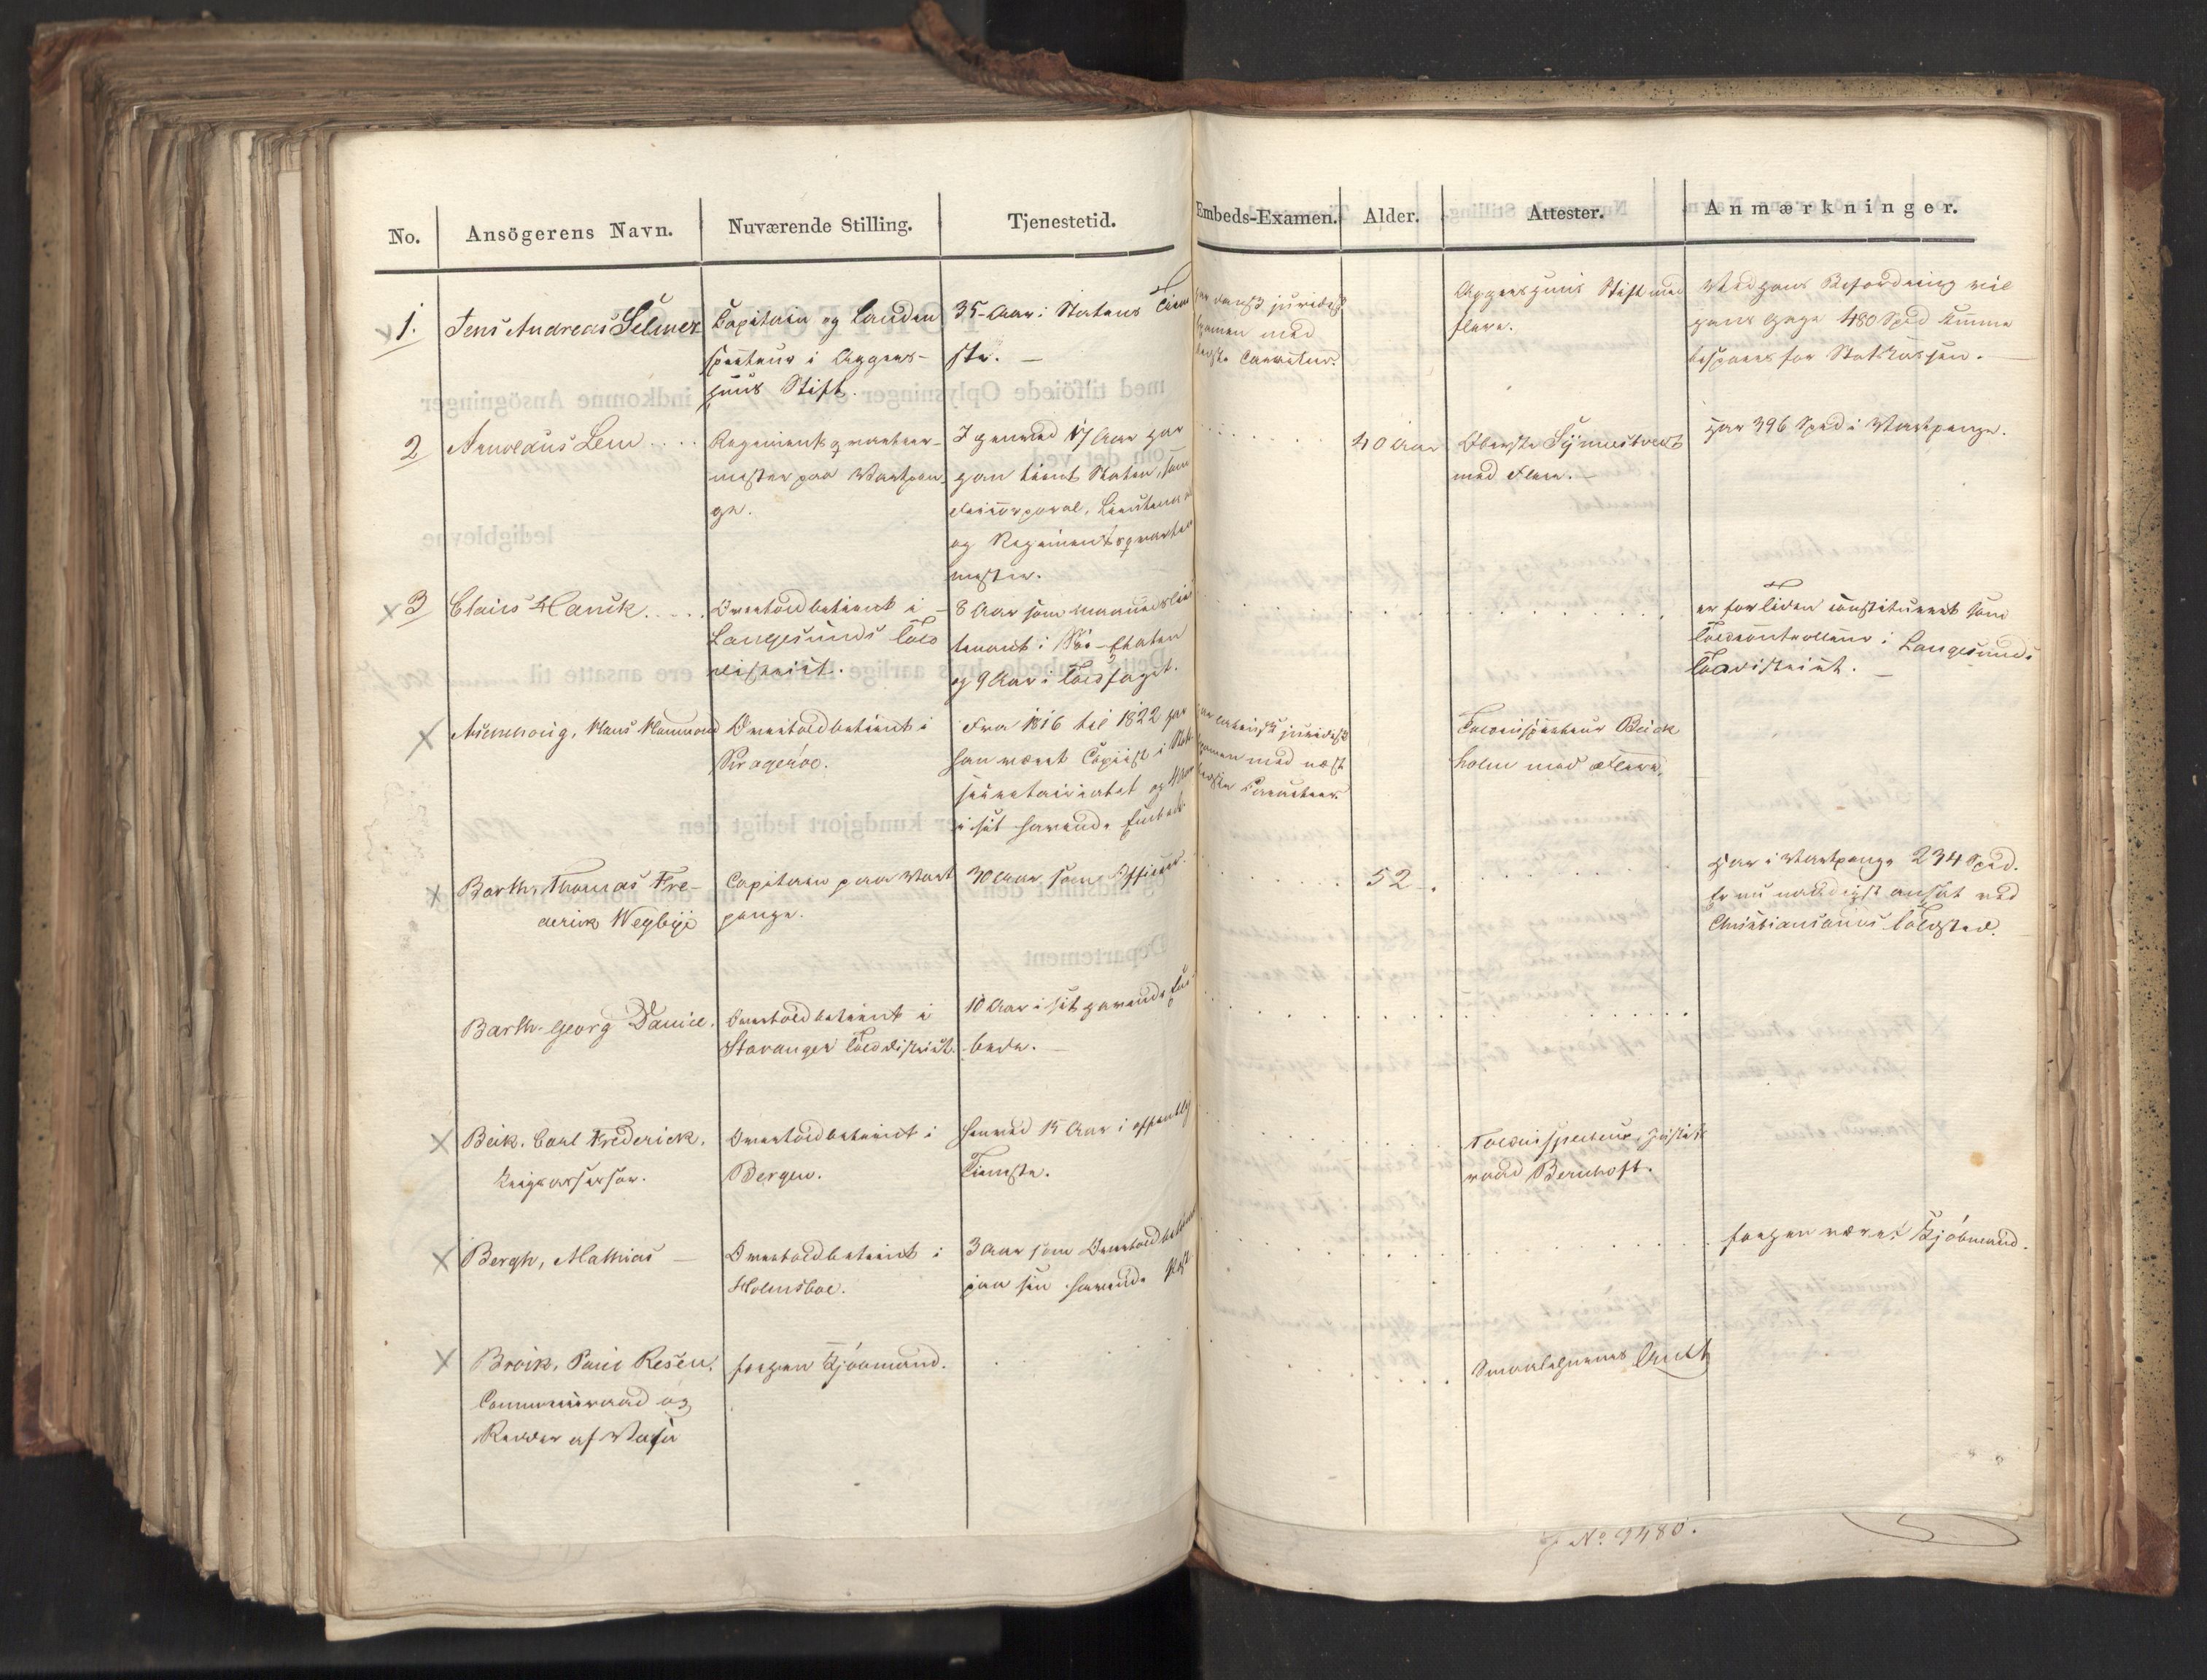 No. Ansögerens Navn. Nuværende Stilling. Tjenestetid. Embeds-Examen. Alder. Attester. Anmærkninger.
1. Jens Andreas Selmer
Capitain og Landin
specteur i Agger-
huus Stift.
35 Aar i Statens Tiene
ste.
har dansk juridisk
Examen med
bedste Caracteer.
Aggershuus Stift med
flere.
Ved hans Befordring vil
hans Gage 480 Spd kunne
bespares for Statskassen.
2 Arnoldus Lem
Regimentsqvarteer-
mester paa Vartpen
ge.
I henved 17 Aar har
han tient Staten, som
Lieutenant
og Regimentsqvarteer
mester.
40 Aar
Oberste Synnestvedt
med Flere.
har 396 Spd i Vartpenge.
3 Claus Hanck
Overtoldbetient i
Langesunds Told
district.
8 Aar som Maanedslieu
tenant i Söe-Etaten
og 9 Aar i Toldfaget.
er for tiden constitueret som
Toldcontrolleur i Langesunds
Tolddistrict.
Aschehoug, Hans Hammond
Overtoldbetient i
Kragerøe.
Fra 1816 til 1822 har
han været Copiist i Stats
secretariatet og 4 Aar
i sit havende Embede
har latinsk juridisk
Examen med næst
bedste Caracteer.
Toldinspecteur Beick
holm med Flere.
Barth, Thomas Fre-
derick Wegbye
Capitain paa Vart
penge.
30 Aar som Officeer.
52
har i Vartpenge 234 Spd.
Er nu naadigst ansat ved
Christiansands Toldsted.
Barth. Georg Daniel.
Overtoldbetient i
Stavanger Tolddistrict.
10 Aar i sit havende Em
bede.
Beik. Carl Frederick.
Krigsassessor.
Overtoldbetient i
Bergen.
henved 15 Aar i offentlig
Tieneste.
Toldinspecteur, Justits
raad Bernhoft.
Bergh, Mathias
Overtoldbetient i
Holmsboe.
3 Aar som Overtoldbetient
paa sin havende Post
forhen været Kjöbmand.
Broik, Paul Resen.
Commerceraad og
Ridder af Vasa
forhen Kjöbmand.
Smaalehnenes Amt
No 9480.